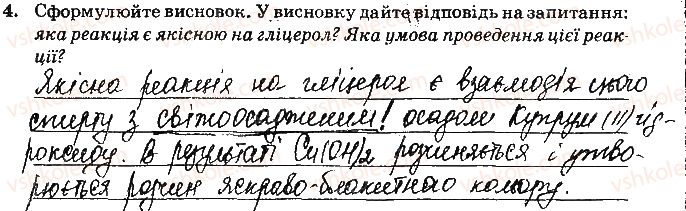 4. Сформулюйте висновок. У висновку дайте відповідь на запитання:
яка реакція є якісною на гліцерол? Яка умова проведення цієї реак-
ції?
Якісна реакція на гліцерол є взаємодія цього
спирту з світоосадженим! осадом Купрум (II) гід
роксиду. В результаті Cu(OH)2 розчиняється і утво-
рюється розчин яскраво-блакитного кольору.